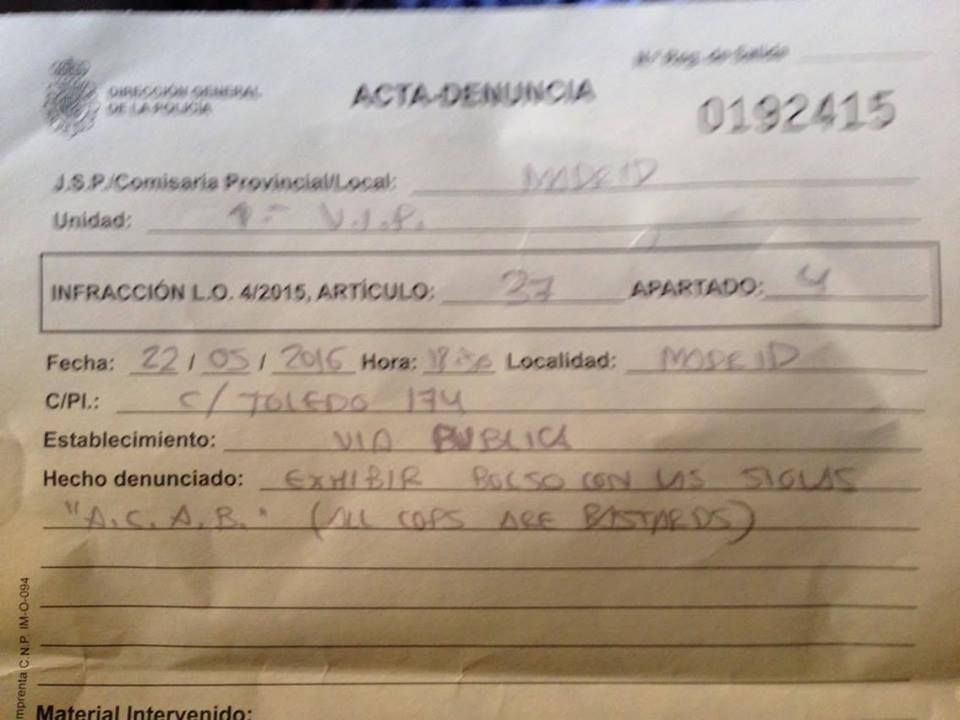 Nº Reg. de Salida
DIRECCIÓN GENERAL
DE LA POLICÍA
ACTA-DENUNCIA
0192415
J.S.P./Comisaria Provincial/Local: MADRID
Unidad: 1ª U.I.P.
INFRACCIÓN L.O. 4/2015, ARTÍCULO: 37 APARTADO: 4
Fecha: 22 / 05 / 2016 Hora: Localidad: MADRID
C/Pl.: C/ TOLEDO 174
Establecimiento: VIA PUBLICA
Hecho denunciado: EXHIBIR BOLSO CON LAS SIGLAS
"A.C.A.B." (ALL COPS ARE BASTARDS)
Imprenta C.N.P. IM-O-094
Material Intervenido: